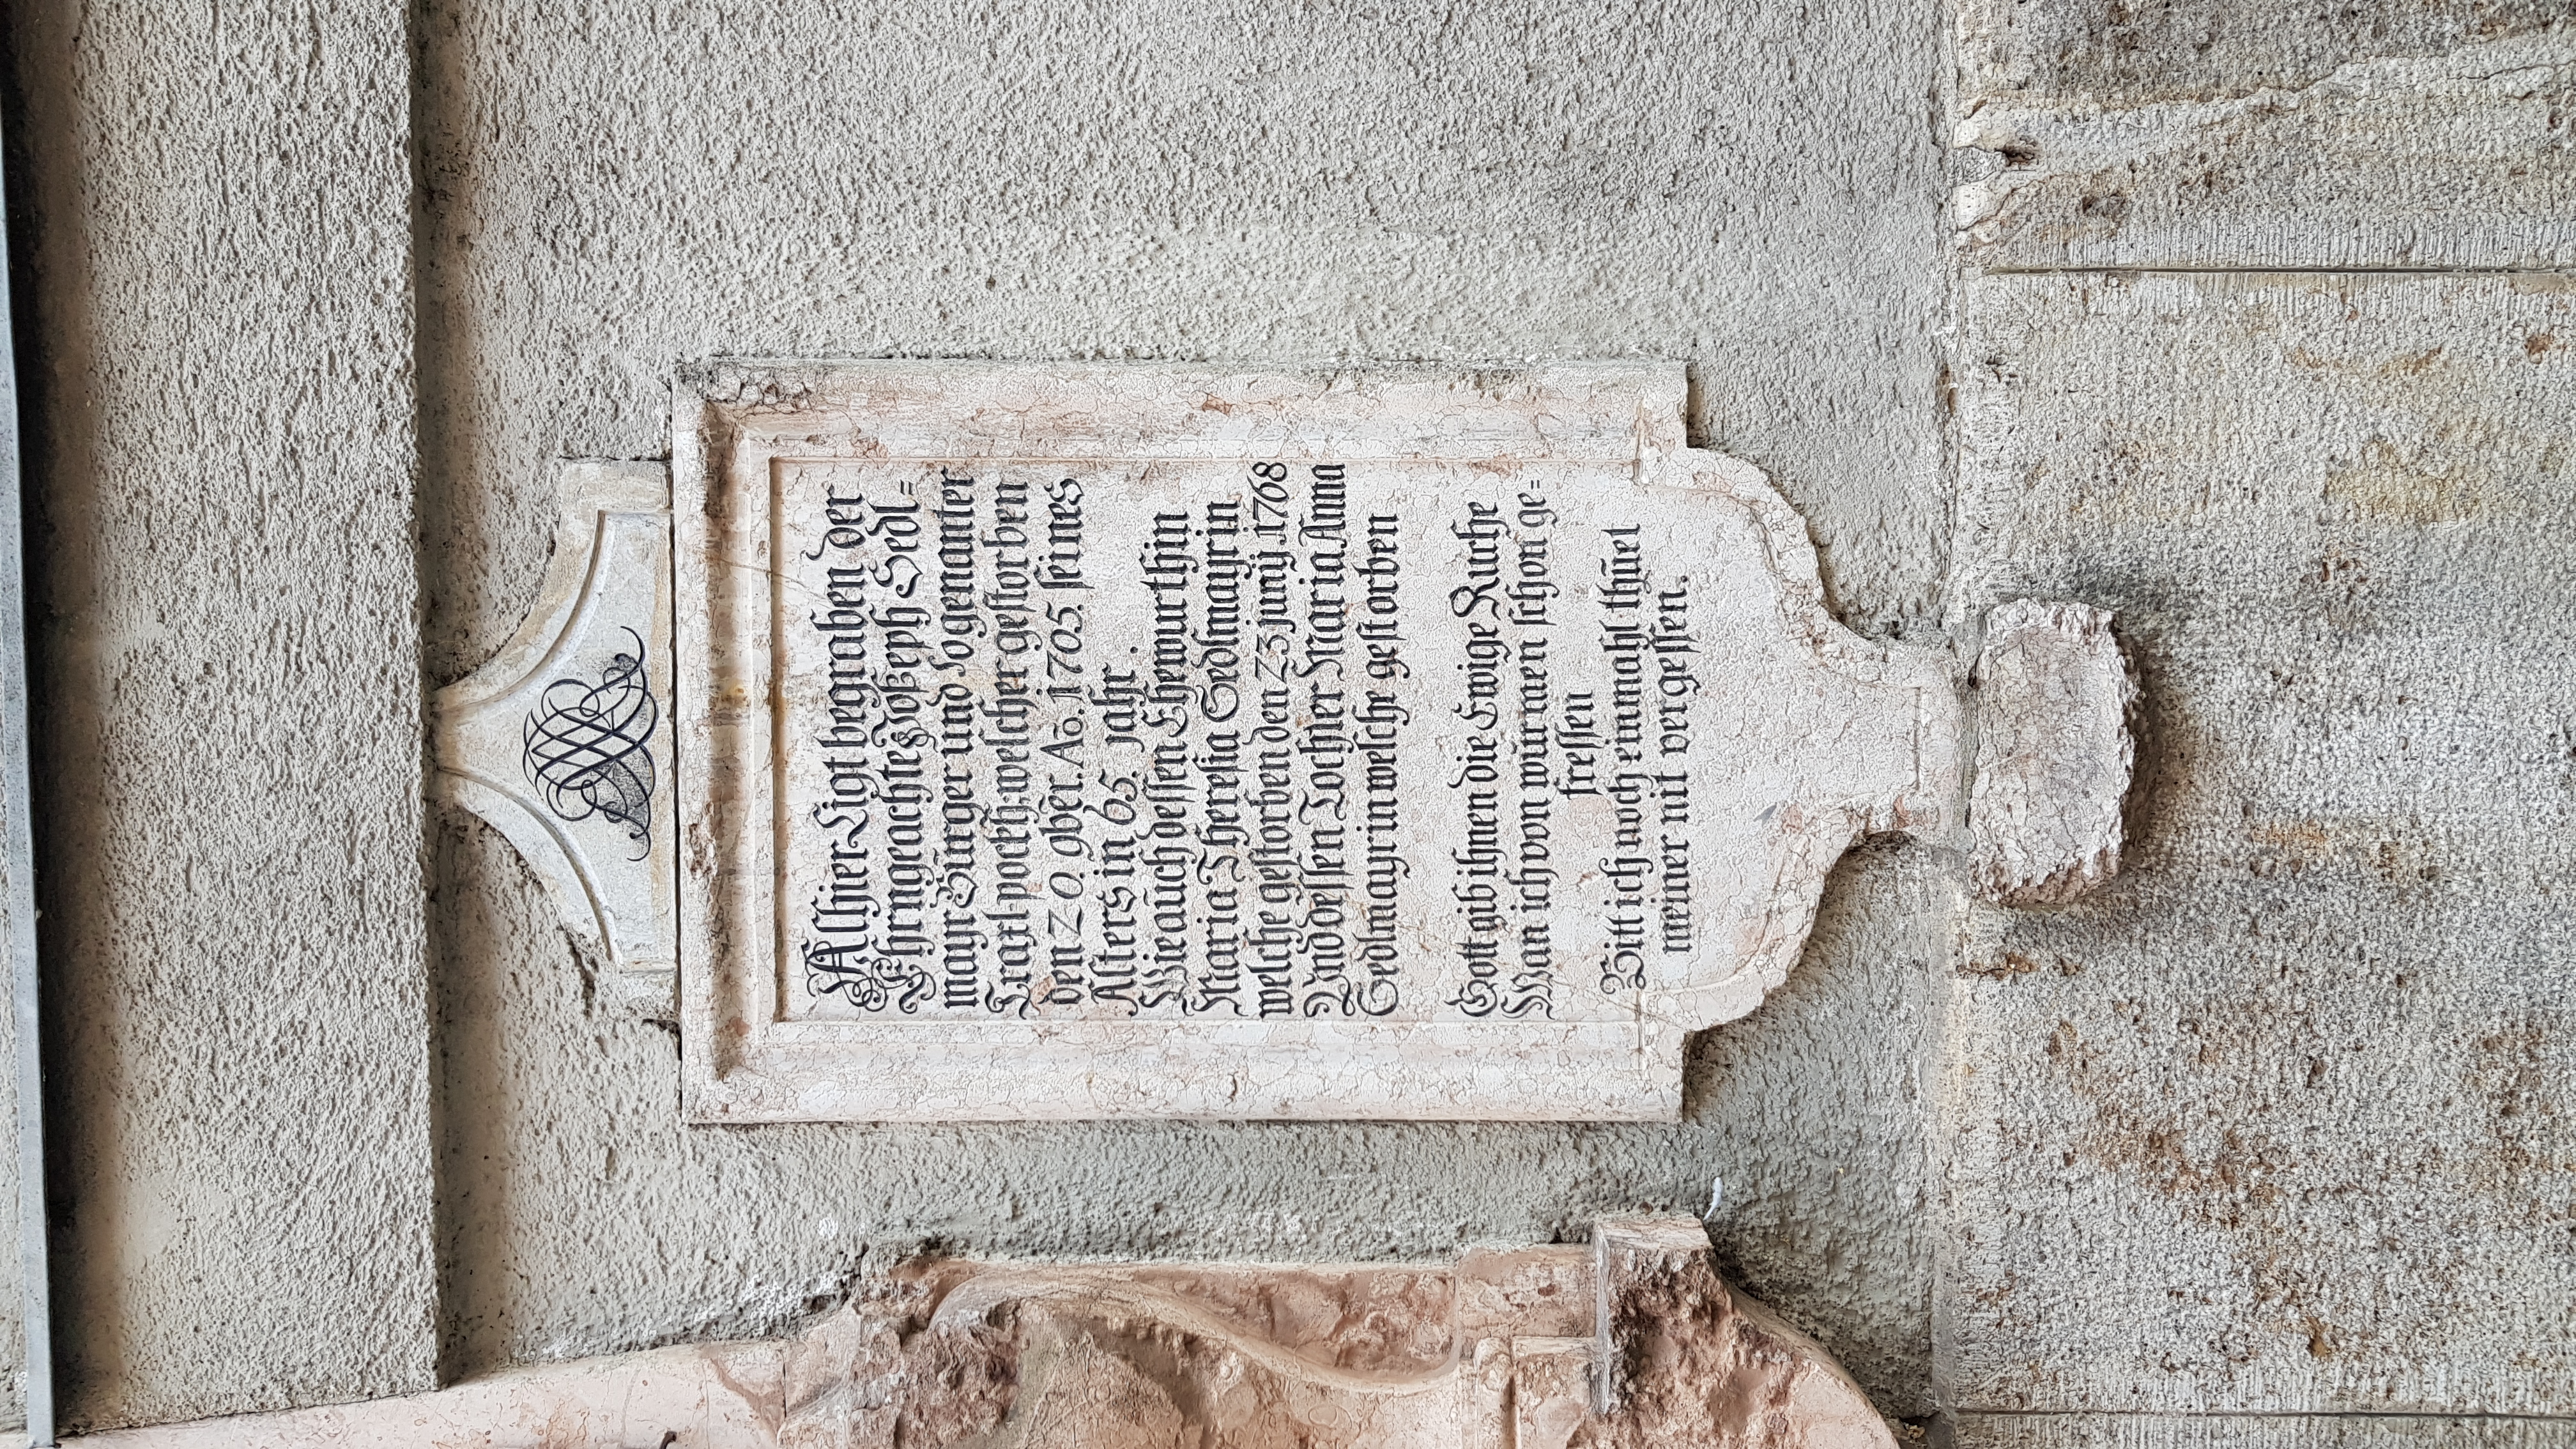 Alhier Ligt begraben der
Ehrngeachte Joseph Sedl=
mayr Bürger und sogenanter
welcher gestorben
den 20. 9bēr. Ao. 1705. seines
Alters in 65. jahr.
Wie auch dessen Ehewürthin
Maria Theresia Sedlmayrin
welche gestorben den 23 junij 1768
Und dessen Tochter Maria Anna
Sedlmayrin welche gestorben
Gott gib ihnen die Ewige Ruehe
Wan ich von würmen schon ge=
fressen
Bitt ich noch einmahl thüet
meiner nit vergessen.